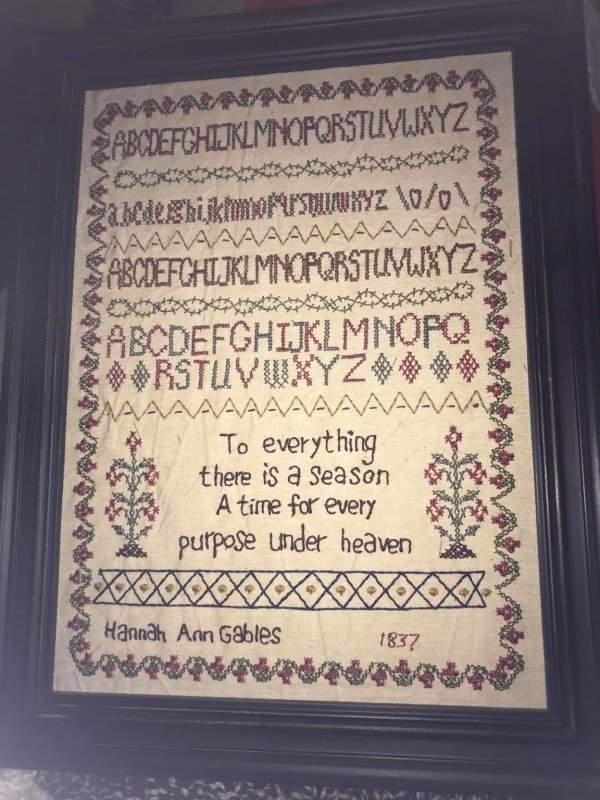 ABCDEFGHIJKLMNOPQRSTUVWXYZ
abcdefghijklmnopqrstuvwxyz \o/o\
ABCDEFGHIJKLMNOPQRSTUVWXYZ
ABCDEFGHIJKLMNOPQ
RSTUVWXYZ
To everything
there is a season
A time for every
purpose under heaven
Hannah Ann Gables 1837